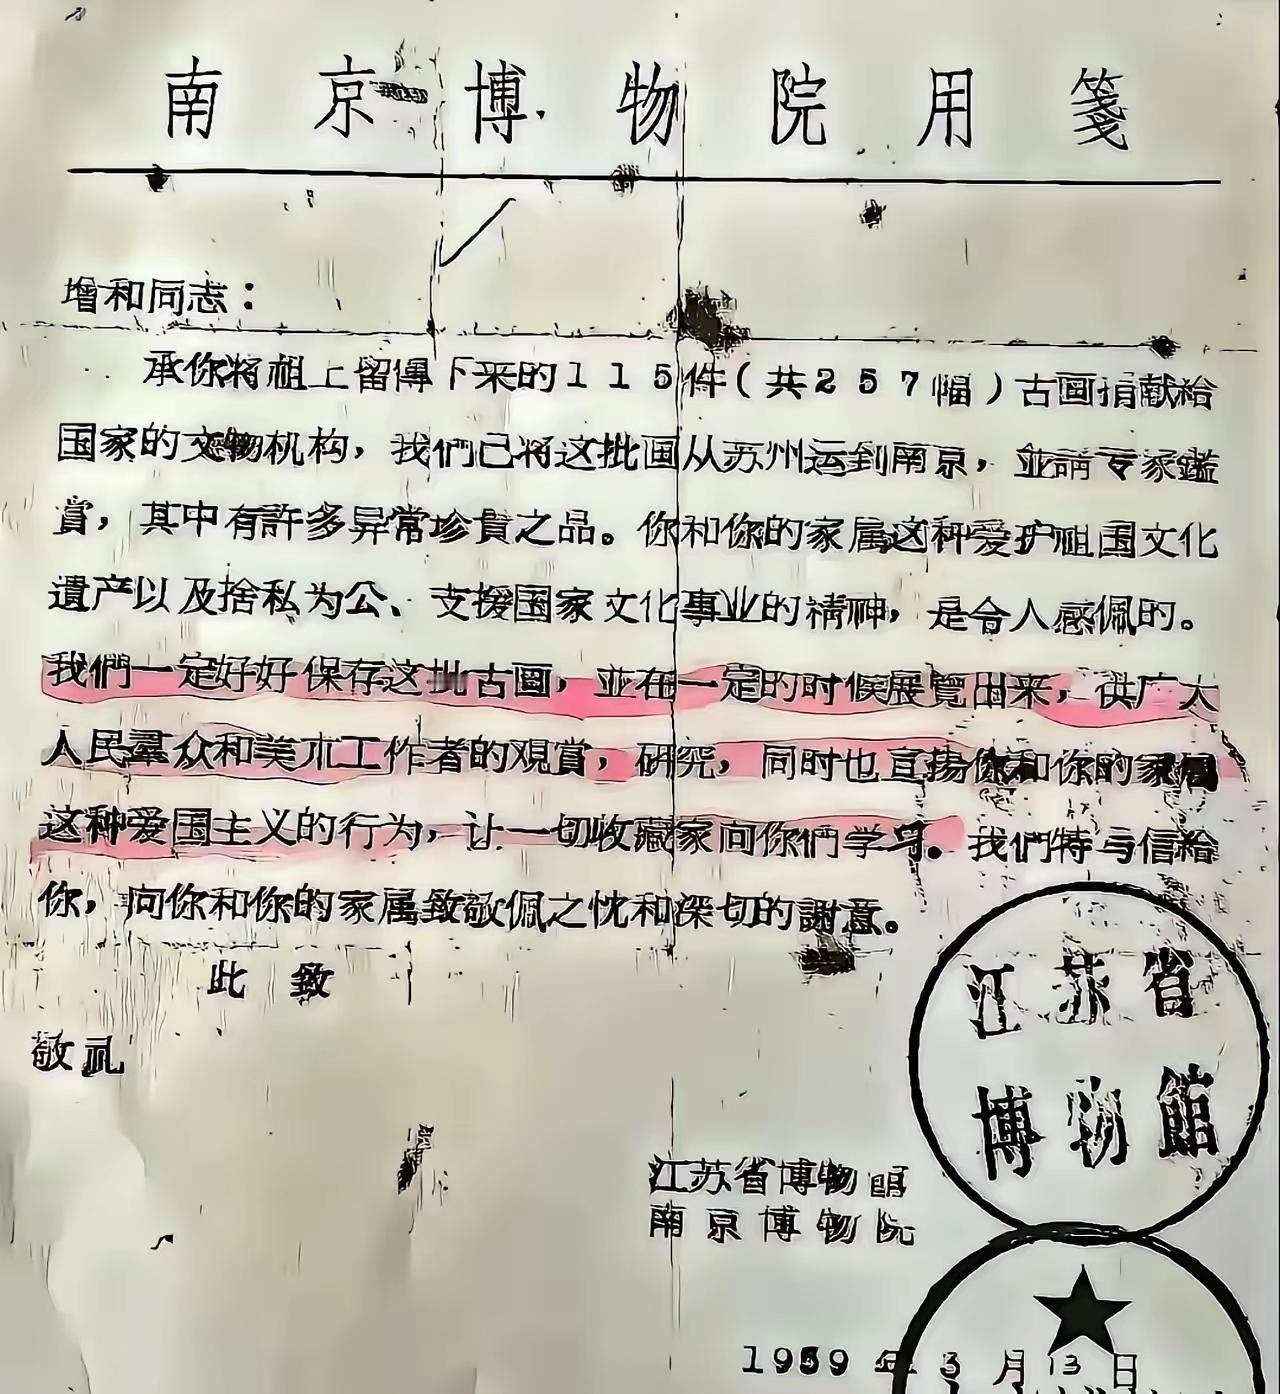 南京博物院用箋
增和同志：
承你将祖上留傳下来的115件(共257幅)古画捐献給
国家的文物机构，我們已将这批画从苏州运到南京，並請专家鑑
賞，其中有許多异常珍貴之品。你和你的家属这种爱护祖国文化
遺产以及捨私为公、支援国家文化事业的精神，是令人感佩的。
我們一定好好保存这批古画，並在一定的时候展覽出来，供广大
人民羣众和美朮工作者的观賞，研究，同时也宣扬你和你的家属
这种爱国主义的行为，让一切收藏家向你們学习。我們特写信給
你，向你和你的家属致敬佩之忱和深切的謝意。
此致
敬礼
江苏省
博物館
江苏省博物館
南京博物院
1959年3月13日